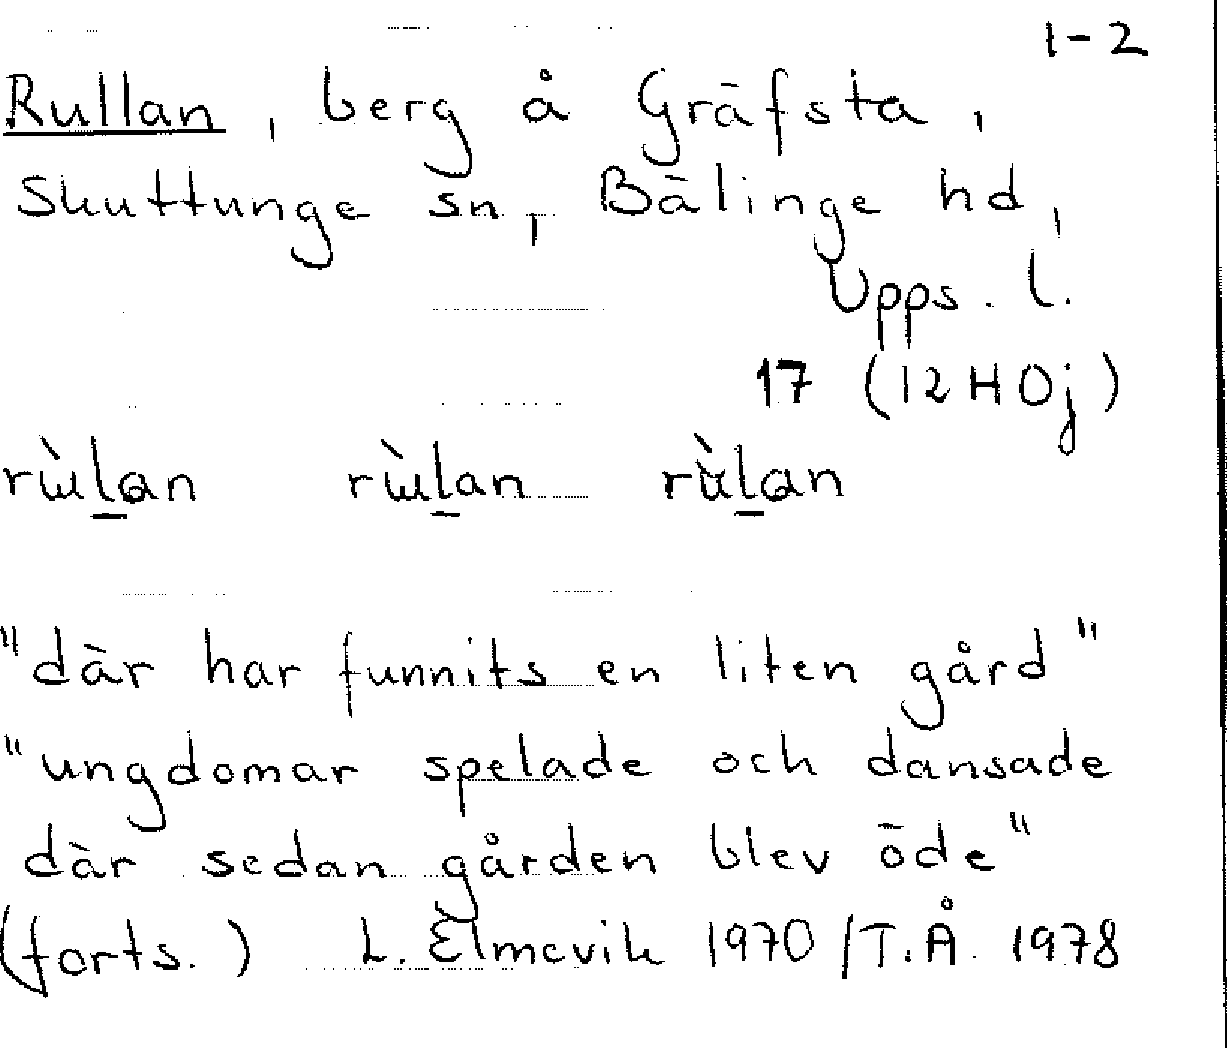 1-2
Rullan, berg å Gräfsta,
Skuttunge sn, Bälinge hd,
Upps. l.
17 (12H0j)
"där har funnits en liten gård"
"ungdomar spelade och dansade
där sedan gården blev öde"
(forts.) L. Elmevik 1970/T.Å. 1978